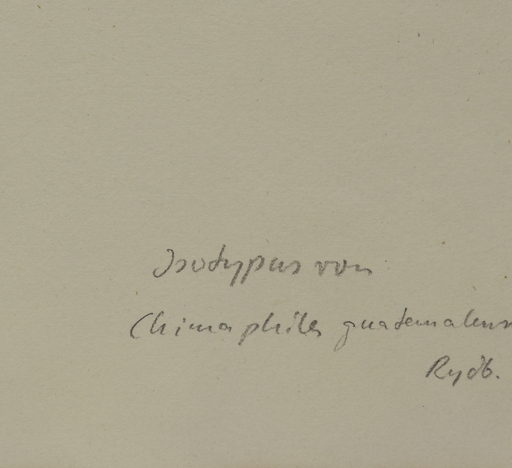 Isotypus von
Chimaphila guatemalens
Rydb.